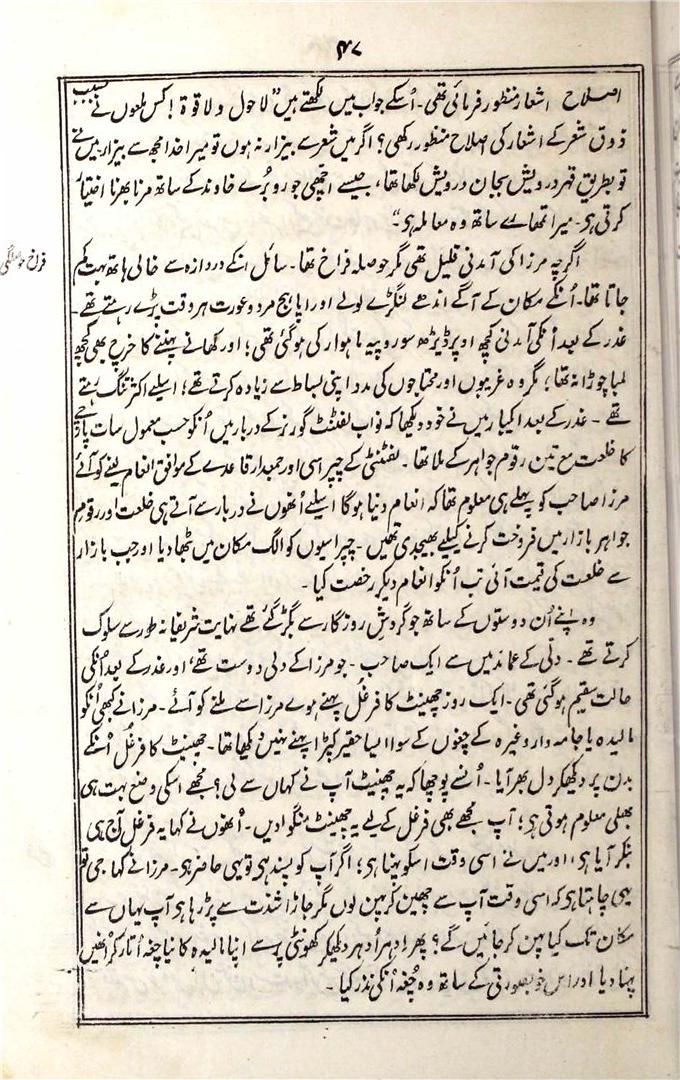 ۴۷
اصلاح اشعار منظور فرمائی تھی۔ اُسکے جواب میں لکھتے ہیں "لاحول ولا قوۃ! کس ملعون نے بسبب
ذوق شعر کے اشعار کی اصلاح منظور رکھی؟ اگر میں شعر سے بیزار نہ ہوں تو میرا خدا مجھ سے بیزار۔ میں نے
تو بطریق قہرِ درویش بجان درویش لکھا تھا، جیسے اچھی جورو بُرے خاوند کے ساتھ مرنا بھرنا اختیار
کرتی ہی۔ میرا تمھارے ساتھ وہ معاملہ ہی۔"
فراخ حوصلگی
اگرچہ مرزا کی آمدنی قلیل تھی مگر حوصلہ فراخ تھا۔ سائل انکے دروازہ سے خالی ہاتھ بہت کم
جاتا تھا۔ اُنکے مکان کے آگے اندھے لنگڑے لولے اور اپاہج مرد و عورت ہر وقت پڑے رہتے تھے۔
غدر کے بعد اُنکی آمدنی کچھ اوپر ڈیڑھ سو روپیہ ماہوار کی ہوگئی تھی؛ اور کھانے پہننے کا خرچ بھی کچھ
لمبا چوڑا نہ تھا؛ مگر وہ غریبوں اور محتاجوں کی مدد اپنی بساط سے زیادہ کرتے تھے؛ اسلیے اکثر تنگ رہتے
تھے۔ غدر کے بعد ایکبار میں نے خود دیکھا کہ نواب لفٹنٹ گورنر کے دربار میں اُنکو حسب معمول سات پارچے
کا خلعت مع تین رقوم جواہر کے ملا تھا۔ لفٹنٹی کے چپراسی اور جمعدار قاعدے کے موافق انعام لینے کو آئے
مرزا صاحب کو پہلے ہی معلوم تھا کہ انعام دینا ہوگا اسلیے اُنھوں نے دربار سے آتے ہی خلعت اور رقوم
جواہر بازار میں فروخت کرنے کیلیے بھیجدی تھیں۔ چپراسیوں کو الگ مکان میں بٹھا دیا اور جب بازار
سے خلعت کی قیمت آئی تب اُنکو انعام دیکر رخصت کیا۔
وہ اپنے اُن دوستوں کے ساتھ جو گردشِ روزگار سے بگڑ گئے تھے نہایت شریفانہ طور سے سلوک
کرتے تھے۔ دلّی کے عمائد میں سے ایک صاحب۔ جو مرزا کے دلی دوست تھے، اور غدر کے بعد اُنکی
حالت سقیم ہوگئی تھی۔ ایک روز چھینٹ کا فرغل پہنے ہوے مرزا سے ملنے کو آئے۔ مرزا نے کبھی اُنکو
مالیدہ یا جامہ وار وغیرہ کے چغوں کے سوا ایسا حقیر کپڑا پہنے نہیں دیکھا تھا۔ چھینٹ کا فرغل اُنکے
بدن پر دیکھکر دل بھر آیا۔ اُنسے پوچھا کہ یہ چھینٹ آپ نے کہاں سے لی؟ مجھے اسکی وضع بہت ہی
بھلی معلوم ہوتی ہی؛ آپ مجھے بھی فرغل کے لیے یہ چھینٹ منگوا دیں۔ اُنھوں نے کہا یہ فرغل آج ہی
بنکر آیا ہی، اور میں نے اسی وقت اسکو پہنا ہی؛ اگر آپ کو پسند ہی تو یہی حاضر ہی۔ مرزا نے کہا جی تو
یہی چاہتا ہی کہ اسی وقت آپ سے چھین کر پہن لوں مگر جاڑا شدّت سے پڑ رہا ہی آپ یہاں سے
مکان تک کیا پہن کر جائیں گے؟ پھر اِدہر اُدہر دیکھکر کھونٹی پر سے اپنا مالیدہ کا نیا چغہ اُتار کر اُنھیں
پہنا دیا اور اس خوبصورتی کے ساتھ وہ چُغہ اُنکی نذر کیا۔